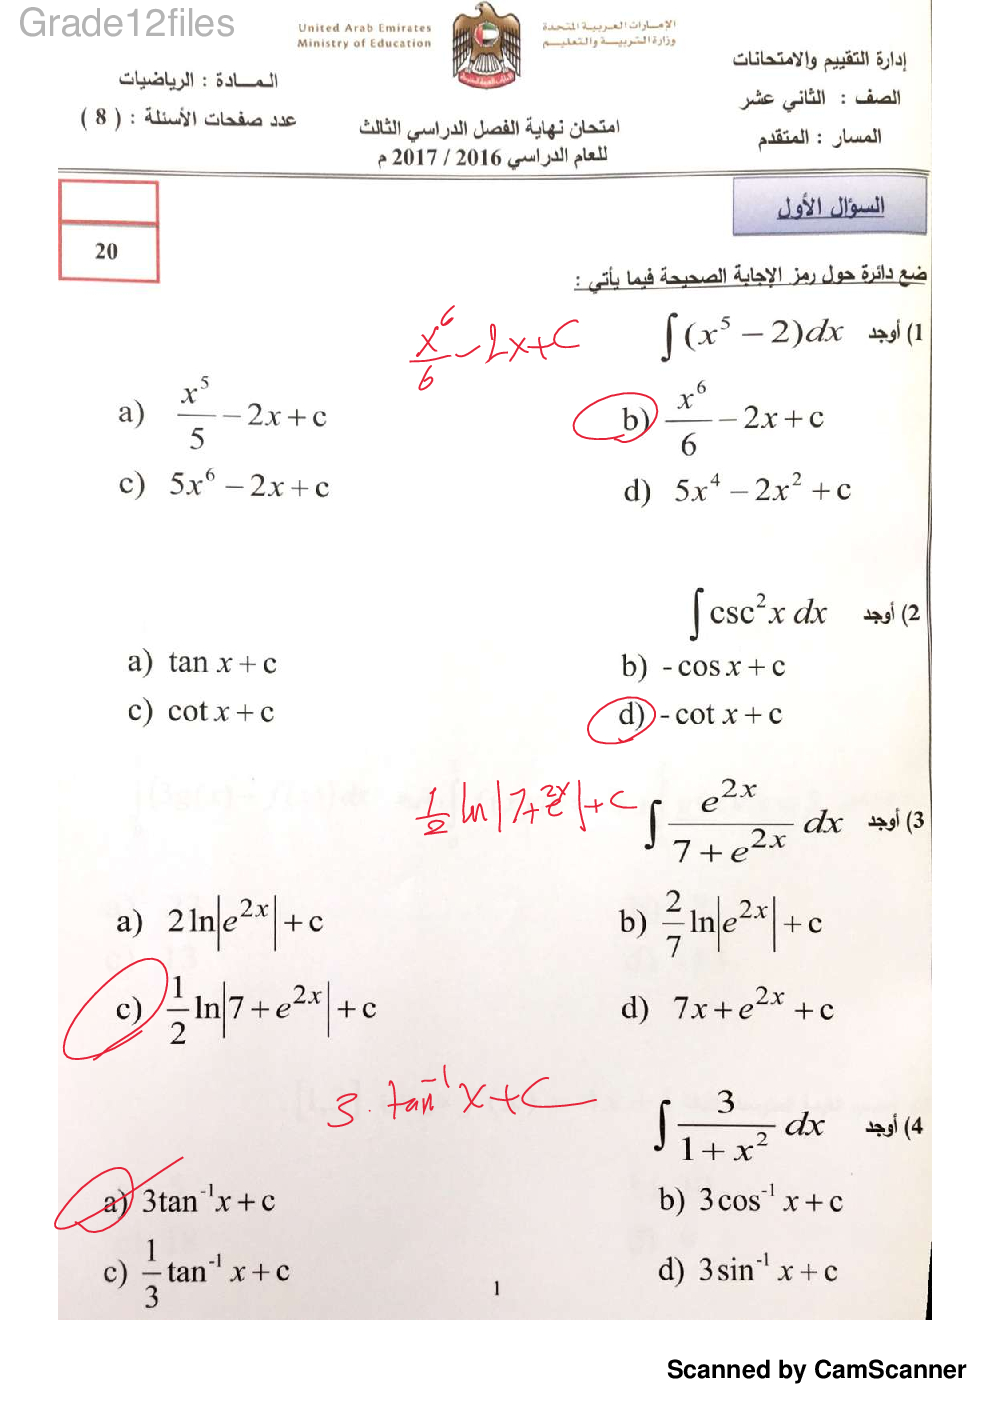 Grade12files
United Arab Emirates
Ministry of Education
الإمارات العربية المتحدة
وزارة التربية والتعليم
إدارة التقييم والامتحانات
الصف : الثاني عشر
المسار : المتقدم
المادة : الرياضيات
عدد صفحات الأسئلة : ( 8 )
امتحان نهاية الفصل الدراسي الثالث
للعام الدراسي 2016 / 2017 م
السؤال الأول
20
ضع دائرة حول رمز الإجابة الصحيحة فيما يأتي :
1) أوجد ∫(x⁵ − 2)dx
x⁶/6 − 2x + C
a) x⁵/5 − 2x + c
b) x⁶/6 − 2x + c
c) 5x⁶ − 2x + c
d) 5x⁴ − 2x² + c
2) أوجد ∫csc²x dx
a) tan x + c
b) -cos x + c
c) cot x + c
d) -cot x + c
3) أوجد ∫ e^(2x)/(7 + e^(2x)) dx
1/2 ln|7+e^(2x)|+C
a) 2 ln|e^(2x)| + c
b) 2/7 ln|e^(2x)| + c
c) 1/2 ln|7 + e^(2x)| + c
d) 7x + e^(2x) + c
4) أوجد ∫ 3/(1 + x²) dx
3. tan⁻¹ x + C
a) 3tan⁻¹x + c
b) 3cos⁻¹ x + c
c) 1/3 tan⁻¹ x + c
d) 3sin⁻¹ x + c
1
Scanned by CamScanner